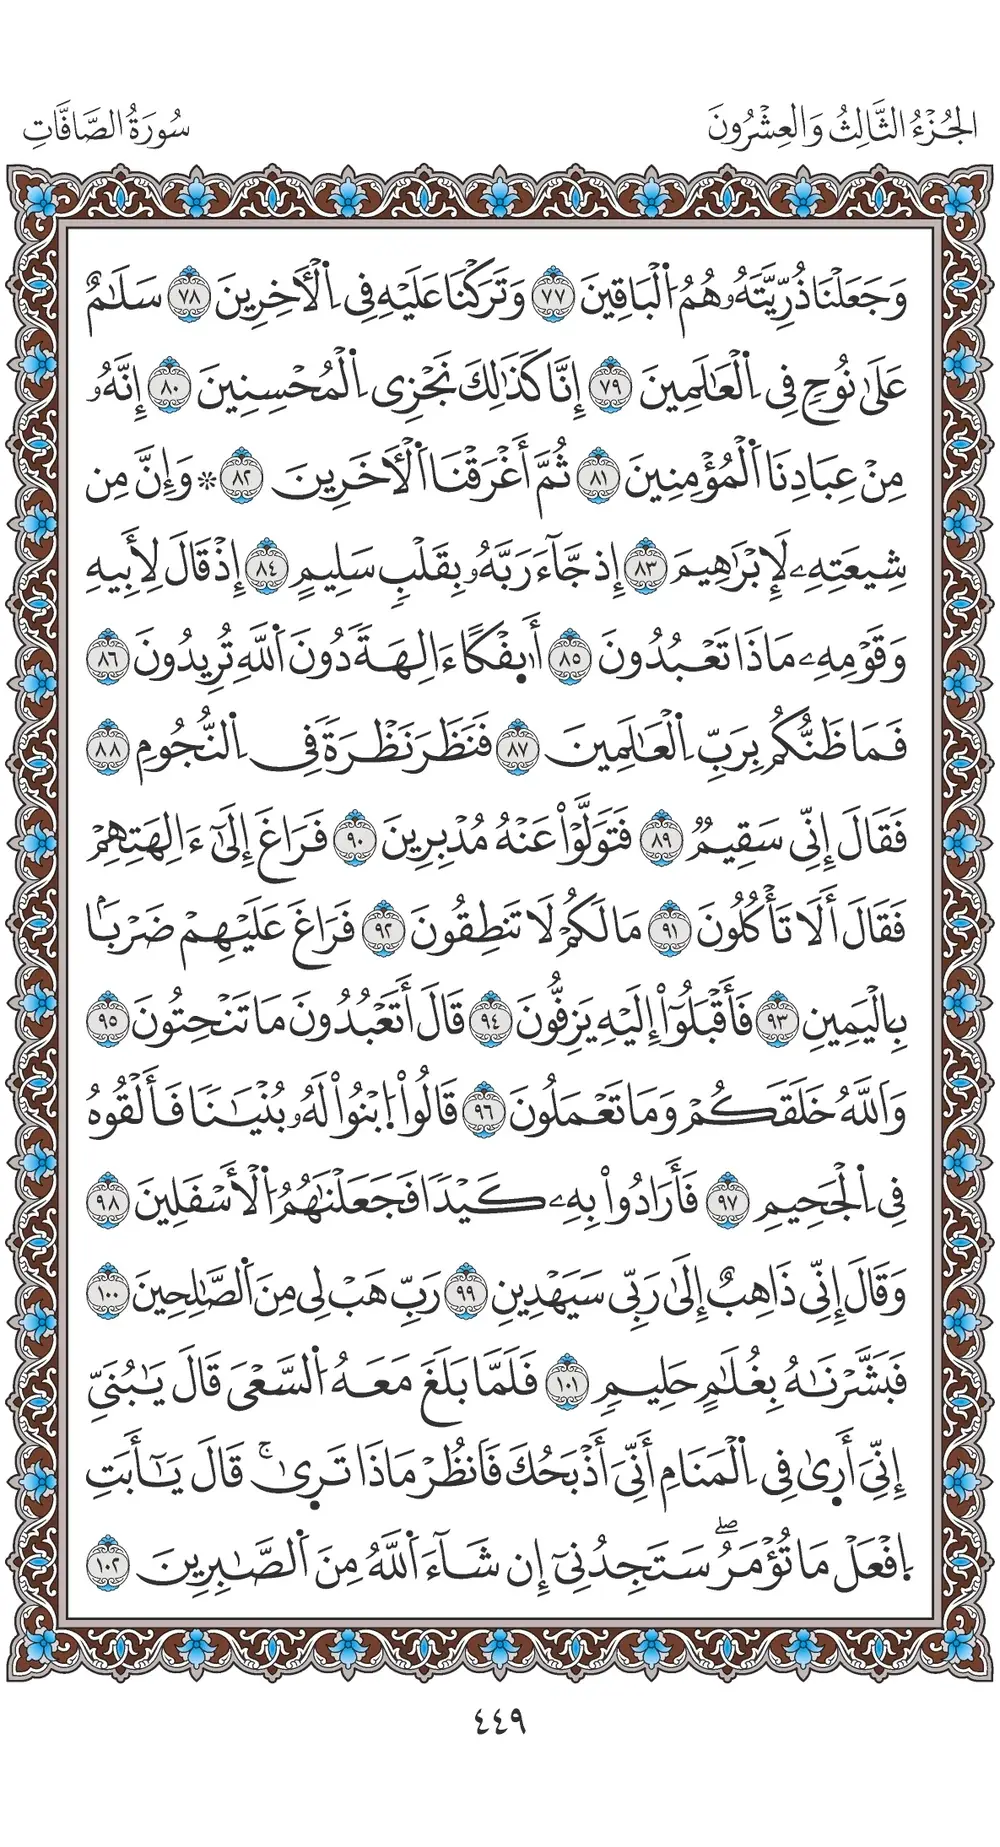 الجُزْءُ الثَّالِثُ وَالعِشْرُونَ
سُورَةُ الصَّافَّاتِ
وَجَعَلْنَا ذُرِّيَّتَهُۥ هُمُ اُ۬لْبَاقِينَ ٧٧ وَتَرَكْنَا عَلَيْهِ فِي اِ۬لْأَخِرِينَ ٧٨ سَلَٰمٌ
عَلَىٰ نُوحٍ فِي اِ۬لْعَٰلَمِينَ ٧٩ إِنَّا كَذَٰلِكَ نَجْزِي اِ۬لْمُحْسِنِينَ ٨٠ إِنَّهُۥ
مِنْ عِبَادِنَا اَ۬لْمُؤْمِنِينَ ٨١ ثُمَّ أَغْرَقْنَا اَ۬لْأَخَرِينَ ٨٢ * وَإِنَّ مِن
شِيعَتِهِۦ لَإِبْرَٰهِيمَ ٨٣ إِذ جَّآءَ رَبَّهُۥ بِقَلْبٍ سَلِيمٍ ٨٤ إِذْ قَالَ لِأَبِيهِ
وَقَوْمِهِۦ مَاذَا تَعْبُدُونَ ٨٥ أَ۟ىِٕفْكًا ءَالِهَةً دُونَ اَ۬للَّهِ تُرِيدُونَ ٨٦
فَمَا ظَنُّكُم بِرَبِّ اِ۬لْعَٰلَمِينَ ٨٧ فَنَظَرَ نَظْرَةً فِي اِ۬لنُّجُومِ ٨٨
فَقَالَ إِنِّي سَقِيمٌ ٨٩ فَتَوَلَّوْاْ عَنْهُ مُدْبِرِينَ ٩٠ فَرَاغَ إِلَىٰٓ ءَالِهَتِهِمْ
فَقَالَ أَلَا تَأْكُلُونَ ٩١ مَا لَكُمْ لَا تَنطِقُونَ ٩٢ فَرَاغَ عَلَيْهِمْ ضَرْبَۢا
بِالْيَمِينِ ٩٣ فَأَقْبَلُوٓاْ إِلَيْهِ يَزِفُّونَ ٩٤ قَالَ أَتَعْبُدُونَ مَا تَنْحِتُونَ ٩٥
وَاَللَّهُ خَلَقَكُمْ وَمَا تَعْمَلُونَ ٩٦ قَالُواْ اُ۪بْنُواْ لَهُۥ بُنْيَٰنًا فَأَلْقُوهُ
فِي اِ۬لْجَحِيمِ ٩٧ فَأَرَادُواْ بِهِۦ كَيْدًا فَجَعَلْنَٰهُمُ اُ۬لْأَسْفَلِينَ ٩٨
وَقَالَ إِنِّي ذَاهِبٌ إِلَىٰ رَبِّي سَيَهْدِينِ ٩٩ رَبِّ هَبْ لِي مِنَ اَ۬لصَّٰلِحِينَ ١٠٠
فَبَشَّرْنَٰهُ بِغُلَٰمٍ حَلِيمٍ ١٠١ فَلَمَّا بَلَغَ مَعَهُ اُ۬لسَّعْيَ قَالَ يَٰبُنَيِّ
إِنِّيَ أَرِىٰ فِي اِ۬لْمَنَامِ أَنِّيَ أَذْبَحُكَ فَانظُرْ مَاذَا تَرِىٰۚ قَالَ يَٰٓأَبَتِ
اِ۪فْعَلْ مَا تُؤْمَرُۖ سَتَجِدُنِيٓ إِن شَآءَ اَ۬للَّهُ مِنَ اَ۬لصَّٰبِرِينَ ١٠٢
٤٤٩